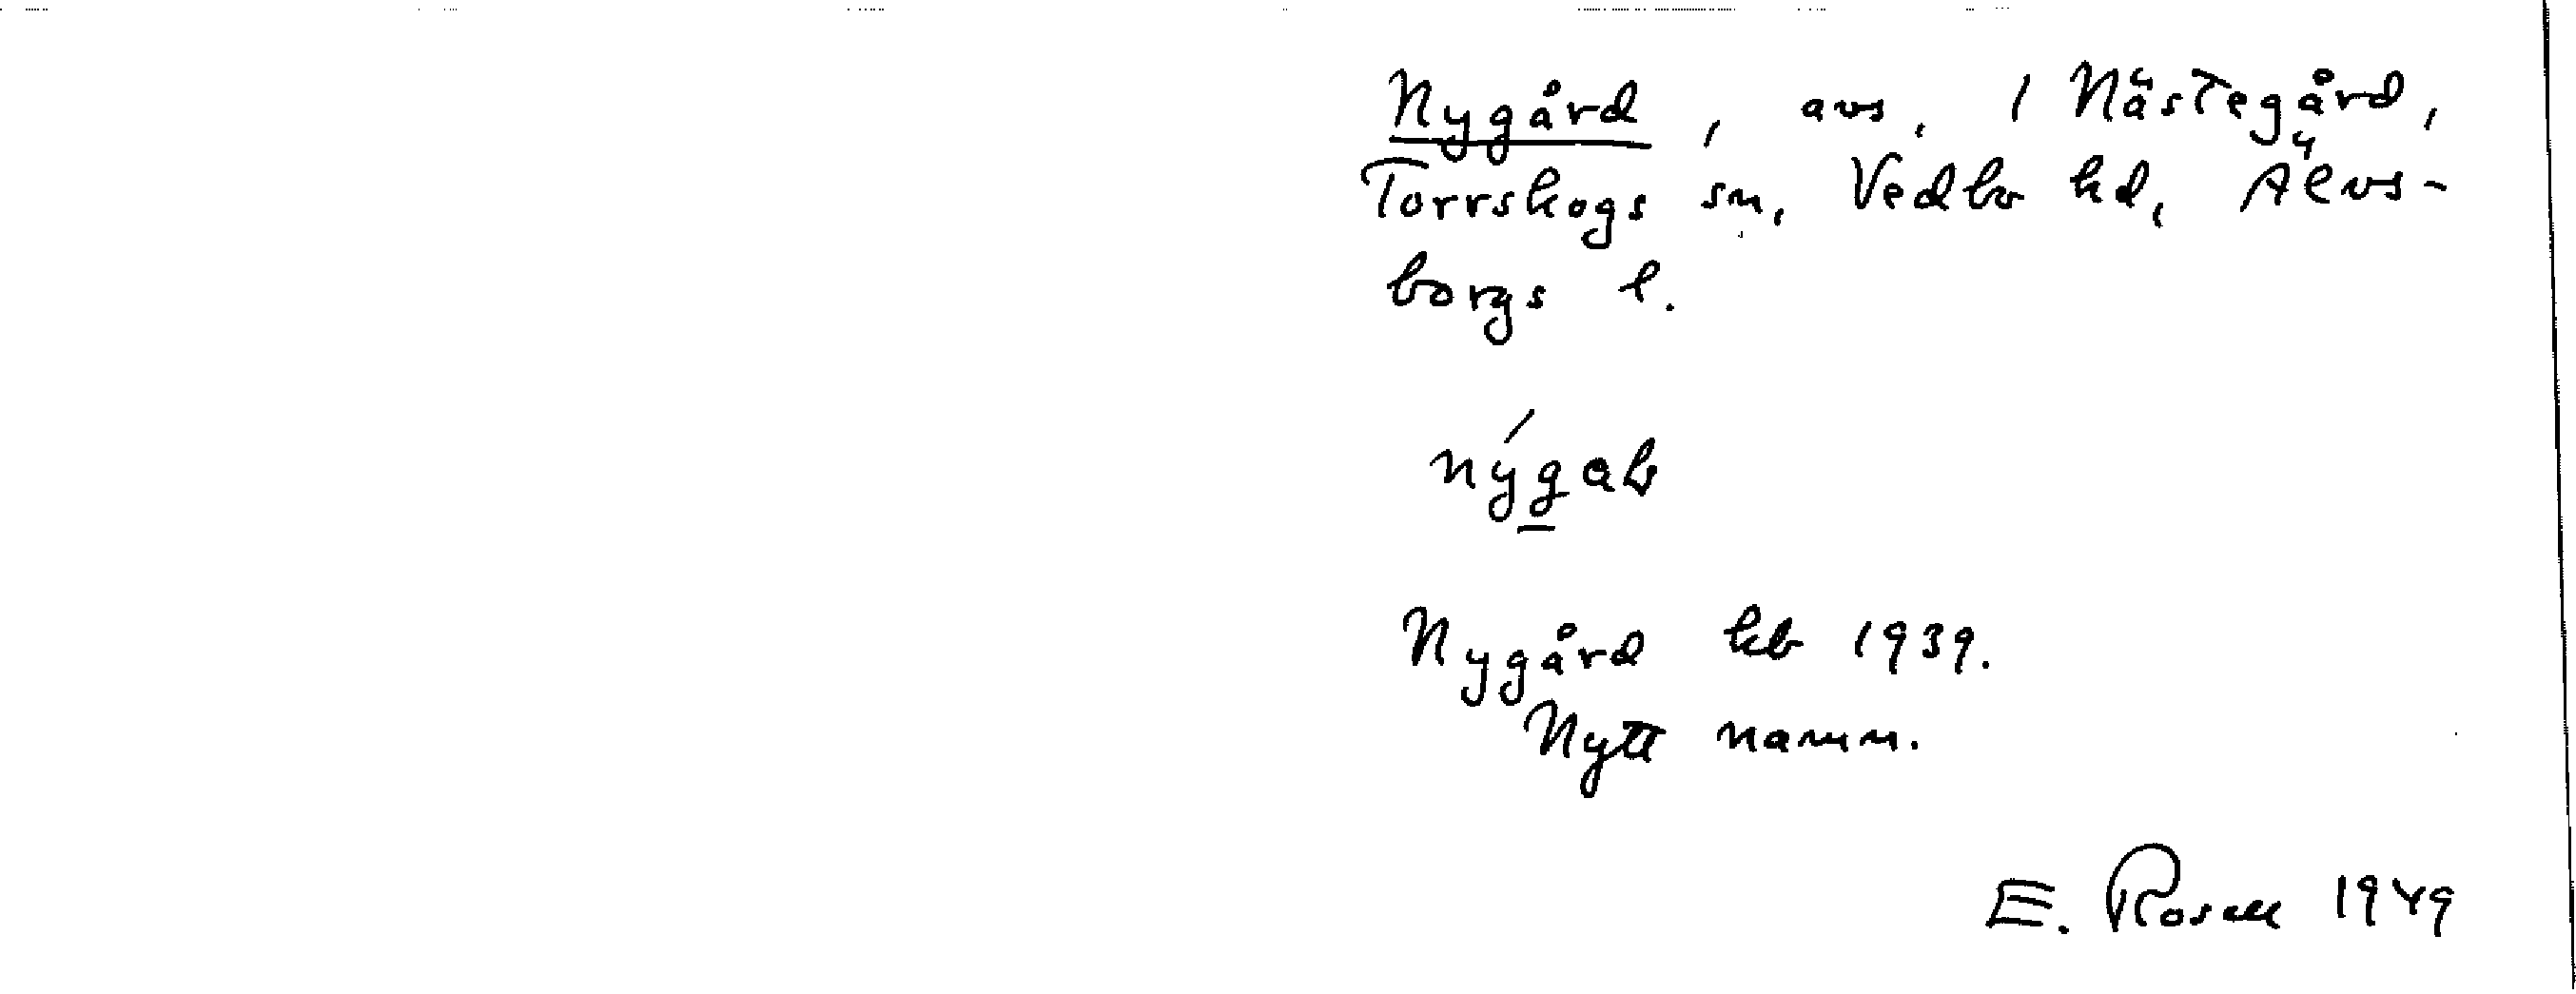 Nygård, avs. 1 Nästegård,
Torrskogs sn, Vedbo hd, Älvs-
borgs l.
Nygård kb 1939.
Nytt namn.
E. Rosell 1949